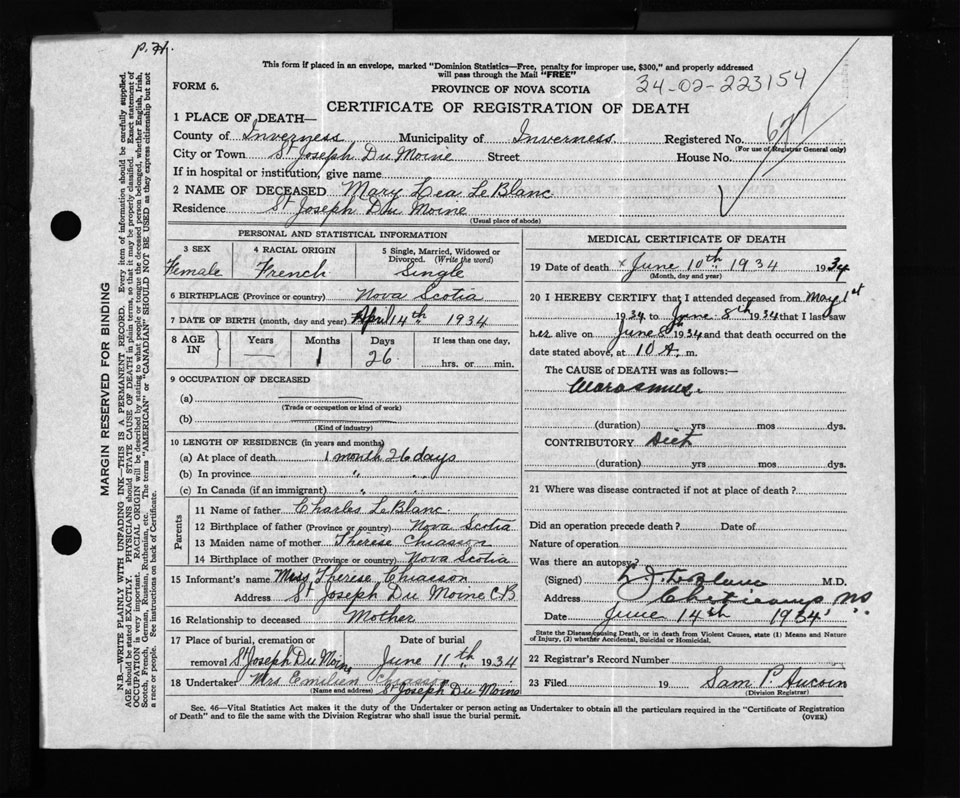 p. H.
This form if placed in an envelope, marked "Dominion Statistics—Free, penalty for improper use, $300," and properly addressed
will pass through the Mail "FREE"
FORM 6.
PROVINCE OF NOVA SCOTIA
34-02-223154
CERTIFICATE OF REGISTRATION OF DEATH
1 PLACE OF DEATH—
County of Inverness Municipality of Inverness Registered No.
(For use of Registrar General only)
City or Town St Joseph Du Moine Street House No.
If in hospital or institution, give name
2 NAME OF DECEASED Mary Lea LeBlanc
Residence St Joseph Du Moine
(Usual place of abode)
PERSONAL AND STATISTICAL INFORMATION
3 SEX Female
4 RACIAL ORIGIN French
5 Single, Married, Widowed or Divorced. (Write the word) Single
6 BIRTHPLACE (Province or country) Nova Scotia
7 DATE OF BIRTH (month, day and year) April 14th 1934
8 AGE IN Years — Months 1 Days 26 If less than one day, hrs. or min.
9 OCCUPATION OF DECEASED
(a)
(Trade or occupation or kind of work)
(b)
(Kind of industry)
10 LENGTH OF RESIDENCE (in years and months)
(a) At place of death 1 month 26 days
(b) In province " "
(c) In Canada (if an immigrant) " "
Parents
11 Name of father Charles LeBlanc
12 Birthplace of father (Province or country) Nova Scotia
13 Maiden name of mother Therese Chiasson
14 Birthplace of mother (Province or country) Nova Scotia
15 Informant's name Miss Therese Chiasson
Address St Joseph Du Moine C B
16 Relationship to deceased Mother
17 Place of burial, cremation or removal St Joseph Du Moine Date of burial June 11th 1934
18 Undertaker Mrs Emilien Chiasson St Joseph Du Moine
(Name and address)
MEDICAL CERTIFICATE OF DEATH
19 Date of death x June 10th 1934 1934
(Month, day and year)
20 I HEREBY CERTIFY that I attended deceased from May 1st
1934 to June 8th 1934 that I last saw
her alive on June 8th 1934 and that death occurred on the
date stated above, at 10 A. m.
The CAUSE of DEATH was as follows:—
Marasmus.
(duration) yrs mos dys.
CONTRIBUTORY Diet
(duration) yrs mos dys.
21 Where was disease contracted if not at place of death?
Did an operation precede death? Date of
Nature of operation
Was there an autopsy?
(Signed) L J LeBlanc M.D.
Address Cheticamp NS.
Date June 14th 1934
State the Disease causing Death, or in death from Violent Causes, state (1) Means and Nature
of Injury, (2) whether Accidental, Suicidal or Homicidal.
22 Registrar's Record Number
23 Filed 19 Sam P. Aucoin
(Division Registrar)
Sec. 46—Vital Statistics Act makes it the duty of the Undertaker or person acting as Undertaker to obtain all the particulars required in the "Certificate of Registration
of Death" and to file the same with the Division Registrar who shall issue the burial permit.
(OVER)
MARGIN RESERVED FOR BINDING
N.B.—WRITE PLAINLY WITH UNFADING INK—THIS IS A PERMANENT RECORD. Every item of information should be carefully supplied.
AGE should be stated EXACTLY. PHYSICIANS should STATE CAUSE OF DEATH in plain terms, so that it may be properly classified. Exact statement of
OCCUPATION is very important. RACIAL ORIGIN will be described by stating to what people or tongue the deceased person belonged, whether English, Irish,
Scotch, French, German, Russian, Ruthenian, etc. The terms "AMERICAN" or "CANADIAN" SHOULD NOT BE USED as they express citizenship but not
a race or people. See instructions on back of Certificate.